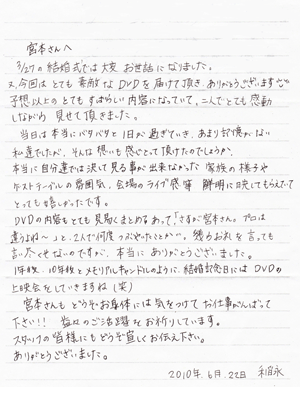 宮本さんへ
3/27の結婚式では大変お世話になりました。
又、今回はとても素敵なDVDを届けて頂き、ありがとうございます
予想以上のとてもすばらしい内容になっていて、二人でとても感動
しながら見せて頂きました。
当日は本当にバタバタと1日が過ぎていき、あまり記憶がない
私達でしたが、そんな想いも感じとって頂けたのでしょうか、
本当に自分達では決して見る事が出来なかった家族の様子や
ゲストテーブルの雰囲気、会場のライブ感等 鮮明に映してもらえてて
とっても嬉しかったです。
DVDの内容もとても見易くまとめあって「さすが宮本さん。プロは
違うよね〜」と、2人で何度つぶやいたことか。残りお礼を言っても
言い尽くせないのですが、本当にありがとうございました。
1年後…10年後とメモリアルキャンドルのように、結婚記念日にはDVDの
上映会をしていきますね(笑)
宮本さんも どうぞお身体には気をつけてお仕事がんばって
下さい!! 益々のご活躍をお祈りしています。
スタッフの皆様にもどうぞ宜しくお伝え下さい。
ありがとうございました。
2010年.6月.22日